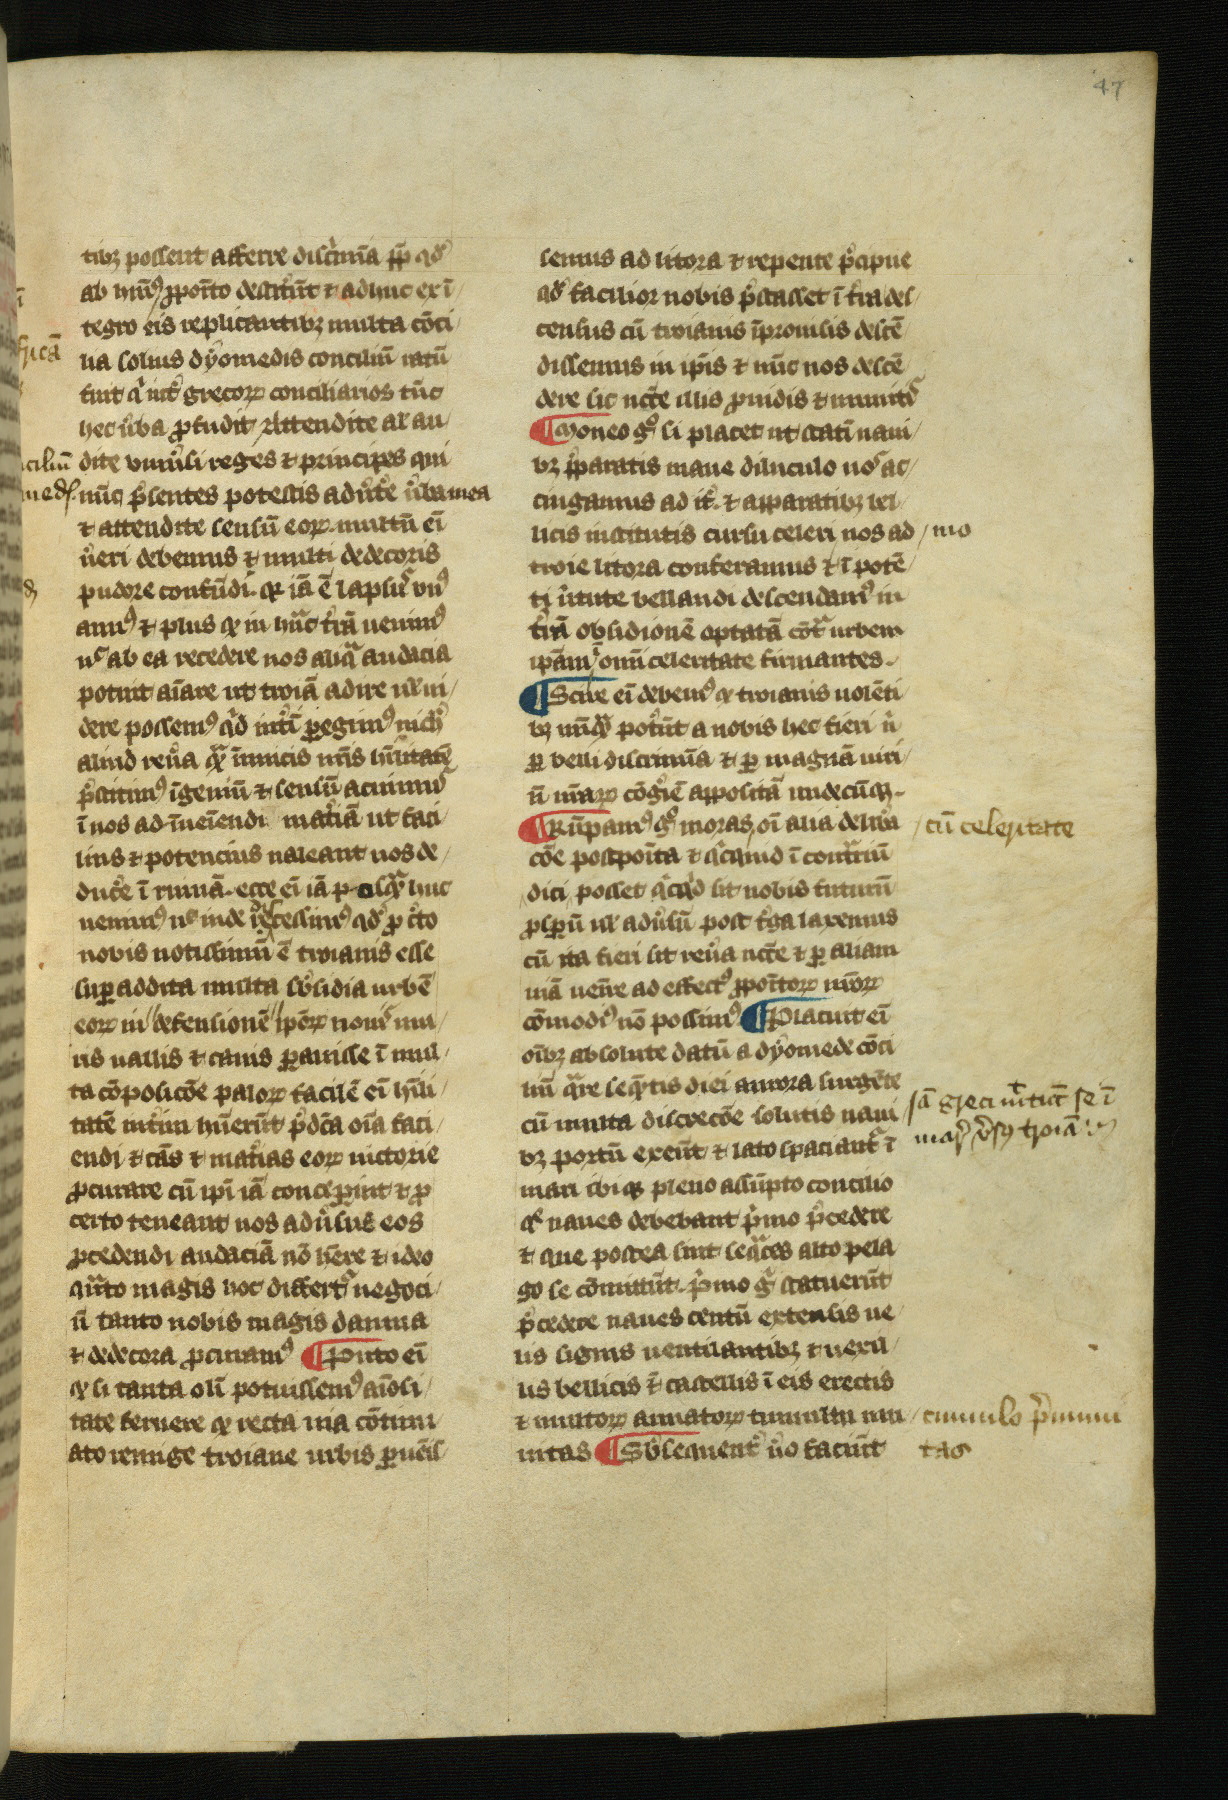 47
tibꝫ possent afferre discrīnia
ab hui᷒ ꝓpoīto desist̄ūt ⁊ adhuc ex ī
tegro eis replicantibꝫ multa cōci
ua solius dyomedis conciliū ratū
fuit q̄ int̄ grecoꝝ conciliarios tūc
hec ūba ꝓfudit Attendite al au
dite vniūsi reges ⁊ principes qui
nūc p̄sentes potestis adūt̄e ūba mea
⁊ attendite sensū eoꝝ multū eī
ūeri debemus ⁊ multi dedecoris
pudore confūdi ꝙ iā ē lapsus vn᷒
ann᷒ ⁊ plus ꝙ in hāc t̄rā uenim᷒
nͨ ab ea recedere nos aliq̄ audacia
potuit aīare ut troiā adire ul ui
dere possem᷒ qͥd int̄ī ꝑegim᷒ nich̄
aliud reūa q̄ inimicis nr̄is h̄ūitatē
p̄stitim᷒ īgeniū ⁊ sensū acuimus
ī nos ad īueīendi mat̄iā ut faci
lius ⁊ potencius ualeant nos de
duc̄e ī ruinā ecce eī iā postq̄ huc
uenim᷒ nͨ inde recessim᷒ qd̄ ꝓ c̄to
nobis notissimū ē troianis esse
suꝑ addita multa sb̄sidia urbē
eoꝝ in defensionē ip̄oꝝ nouis mu
ris uallis ⁊ cauis ꝑauisse ī mul
ta cōposicōe paloꝝ facilē eī h̄ūi
tatē int̄im hūerūt p̄dc̄a oīa faci
endi ⁊ cās ⁊ mat̄ias eoꝝ uictorie
ꝓcurare cū ip̄i iā conceꝑint ⁊ ꝓ
certo teneant nos adūsus eos
ꝓcedendi audaciā nō h̄ere ⁊ ideo
qn̄to magis hoc differt᷑ negoci
ū tanto nobis magis dampna
⁊ dedecora ꝓcuram᷒ ¶ Puto eī
ꝙ si tanta olī potuissem᷒ aīosi
tate feruere ꝙ recta uia cōtinu
ato remige troiane urbis ꝑuēis
semus ad litora ⁊ repente p̄cipue
qd̄ facilior nobis p̄stasset ī t̄ra des
census cū troianis īprouisis descē
dissemus in ip̄is ⁊ nūc nos descē
dere sic nc̄te illis ꝓuidis ⁊ munitis
¶ Moneo gͦ si placet ut statī naui
bꝫ p̄paratis mane diluculo nos ac
cingamus ad it̄ ⁊ apparatibꝫ uel
licis institutis cursu celeri nos ad
troie litora conferamus ⁊ ī potē
ti ūtute bellandi descendam᷒ in
t̄rā obsidionē optatā cōt̄ urbem
ip̄am oīni celeritate firmantes
¶ Scire eī debem᷒ ꝙ troianis nolēti
bꝫ nūq̄ pot̄ūt a nobis hec fieri n̄
ꝑ belli discrimīa ⁊ ꝑ magnā uiri
ū nr̄aꝝ cōgiē appositā undecūqꝫ
¶ Rūpam᷒ gͦ moras oī alia delib̄a
cōe postpoīta ⁊ qͥcquid ī contrariū
dici posset qͥcqͥd sit nobis futurū
ꝓsꝑū ul adūsū post t̄ga laxemus
cū ita fieri sit reūa nc̄te ⁊ ꝑ aliam
uiā uenire ad effect᷒ ꝓpoītoꝝ nr̄oꝝ
cōmodi᷒ nō possim᷒ ¶ Placuit eī
oībꝫ absolute datū a dyomede cōci
liū q̄re seq̄ntis diei aurora surgēte
cū multa discrecōe solutis naui
bꝫ portū exeūt ⁊ lato spaciant᷑ ī
mari ibiqꝫ pleno assūpto concilio
q̄ naues debebant p̄mo p̄cedere
⁊ que postea sint seq̄ces alto pela
go se cōmittūt p̄mo gͦ statuerūt
p̄cedere naues centū extensis ue
lis lignis uentilantibꝫ ⁊ uexil
lis bellicis ⁊ castellis ī eis erectis
⁊ multoꝝ armatoꝝ tumultu mu
nitas ¶ Sb̄sequent᷑ ūo faciūt
mo
cū celeritate
iā greci mittūt se ī
mare ūsꝫ troiā
cumulo p̄muni
tas